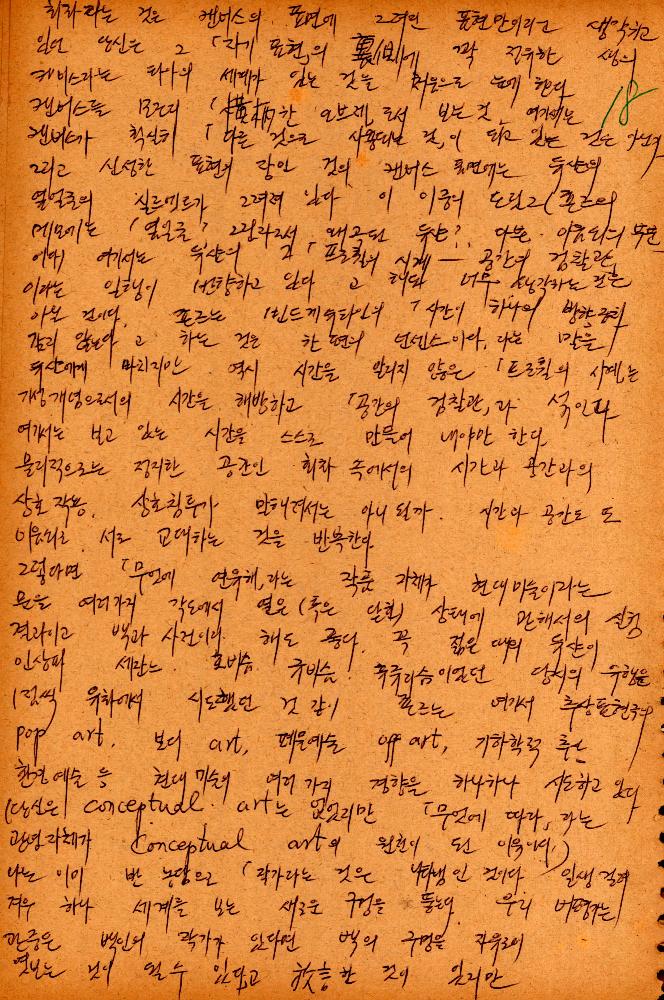 회화라는 것은 캔버스의 표면에 그려진 표현만이라고 생각하고
있던 당신은 그 「자기표현」의 裏側에 꽉 전유한 생의
캔버스라는 타아의 세계가 있는 것을 처음으로 눈에 한다
캔버스를 「橫柄한 오브제」로서 보는 것, 여기에는
캔버스가 확실히 「다른 것으로 사용되는 것」이 되고 있는 것은 아닌가
18
그리고 신성한 표현의 장인 것의 캔버스 표면에는 뒤샹의
옆얼굴의 실루엣트가 그려져 있다 이 이중의 도릭크(죤즈의
메모에는 「옆얼굴? 그림라로서 왜곡된 뒤샹?」 다른 이음의 무언
여기서는 뒤샹의 그 「프로필의 시계 — 공간의 검찰관」
이라는 일행이 반향하고 있다고 해도 너무 생각하는 것은
아닐 것이다. 죤즈는 빈드게슈타인의 「시간이 하나의 방향
갖지 않는다고 하는 것은 한 편의 넌센스이다」라는 말을
뒤샹에게 마찬지만 역시 시간을 알리지 않은 「프로필의 시계」는
개성개념으로서의 시간을 해방하고 「공간의 검찰관」과
여기서는 보고 있는 시간을 스스로 만들어 내야만 한다
물리적으로는 정지한 공간인 회화 속에서의 시간과 공간과의
상호작용, 상호침투가 말해져서는 아니 될까. 시간과 공간도 또
이음으로 서로 교대하는 것을 반복한다
그렇다면 「무언에 연유해」라는 작품 자체가 현대미술이라는
문을 여러가지 각도에서 열은 (혹은 닫힌) 상태에 관해서의 실험
결과이고 백과사전이라 해도 좋다. 꼭 젊은 때의 뒤샹이
인상파 세잔느 포비슴 큐비슴 후츄리슴이었던 당시의 유행을
1점씩 유화에서 시도했던 것 같이 죤즈는 여기서 추상표현주의
pop art, 보디 art, 폐물예술 op art, 기하학적 추상
환경예술 등 현대미술의 여러가지 경향을 하나하나 시도하고 있다
(당신은 conceptual art는 없었지만 「무언에 따라」라는
관념자체가 Conceptual art의 원천이 된 이유이다)
나는 이미 반 농담으로 「작가라는 것은 인 것이다 인생 걸려
겨우 하나 세계를 보는 새로운 구멍을 뚫는다 우리 비평가는
관중은 백인의 작가가 있다면 백의 구멍을 자유로이
엿보는 것이 될 수 있다」고 放言한 것이 있지만